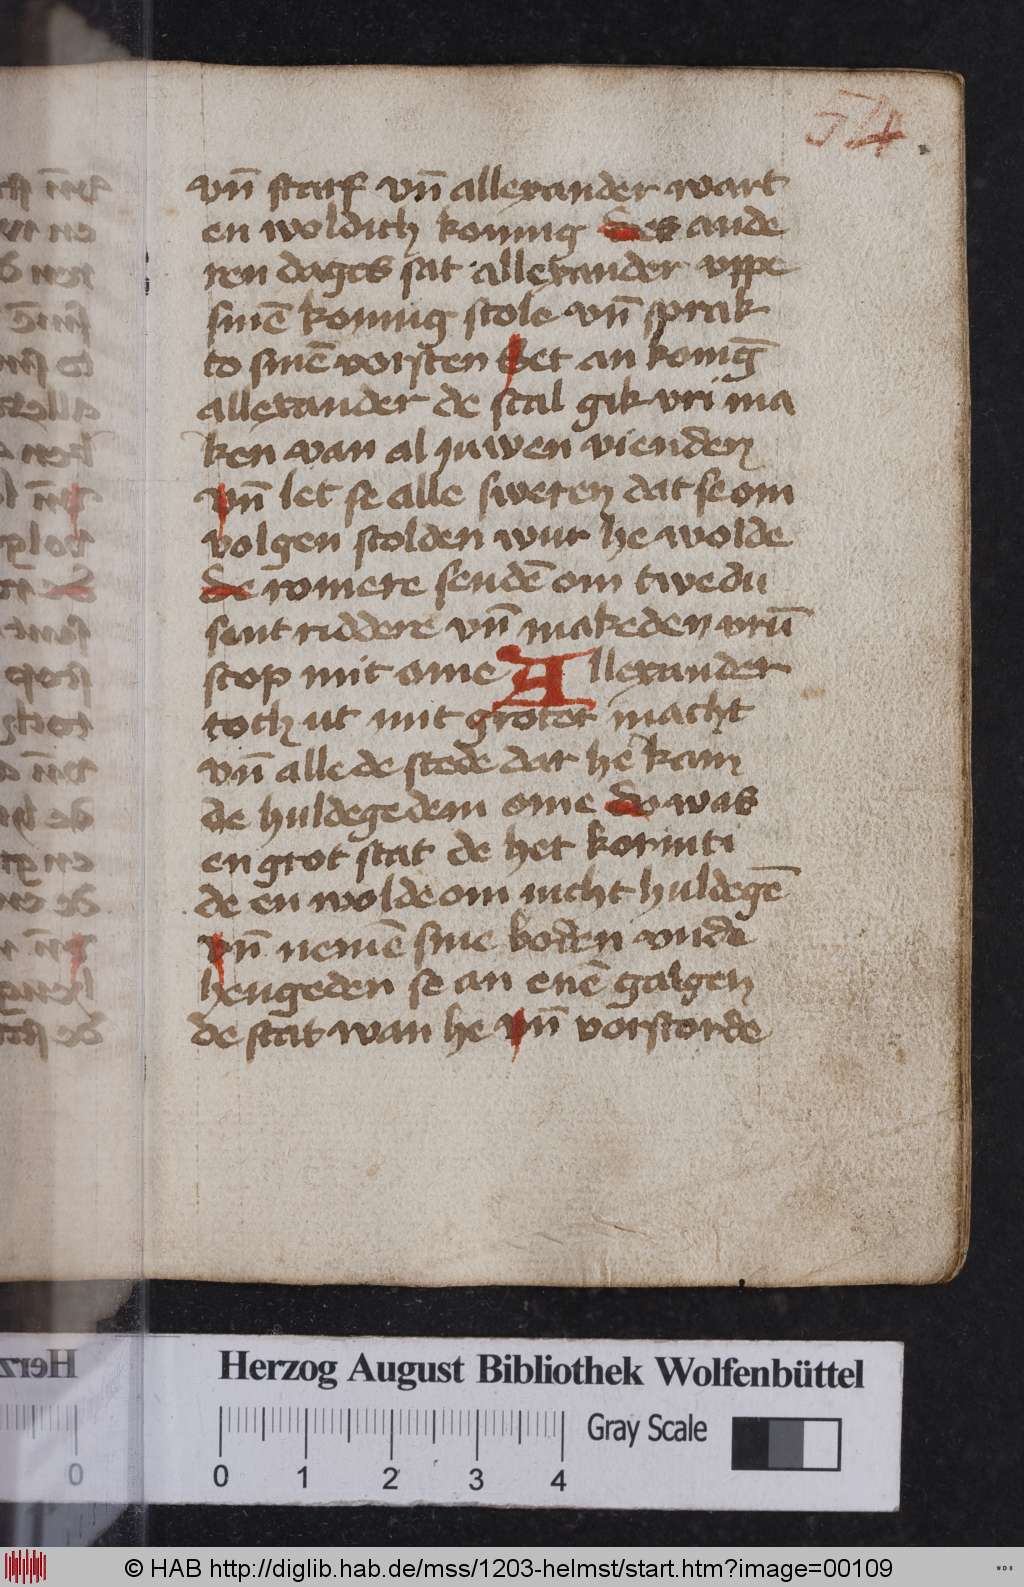 54
vn̄ starf vn̄ allexander wart
en woldich konnig Des ande
ren dages sat allexander vppe
sinē konnig stole vn̄ sprak
to sinē vorsten Set an konīg
allexander de schal gik vri ma
ken van al juwen vienden
vn̄ let se alle sweren dat se om
volgen scolden wur he wolde
De romere sendē om twe du
sent riddere vn̄ makeden vrū
scop mit ome Allexander
toch ut mit groter macht
vn̄ alle de stede dar he kam
de huldegedem ome Do was
en grot stat de het korinti
de en wolde om nicht huldegē
vn̄ nemē sine boden vnde
hengeden se an enē galgen
de stat wan he vn̄ vorstorde
Herzog August Bibliothek Wolfenbüttel
0 1 2 3 4
Gray Scale
© HAB http://diglib.hab.de/mss/1203-helmst/start.htm?image=00109